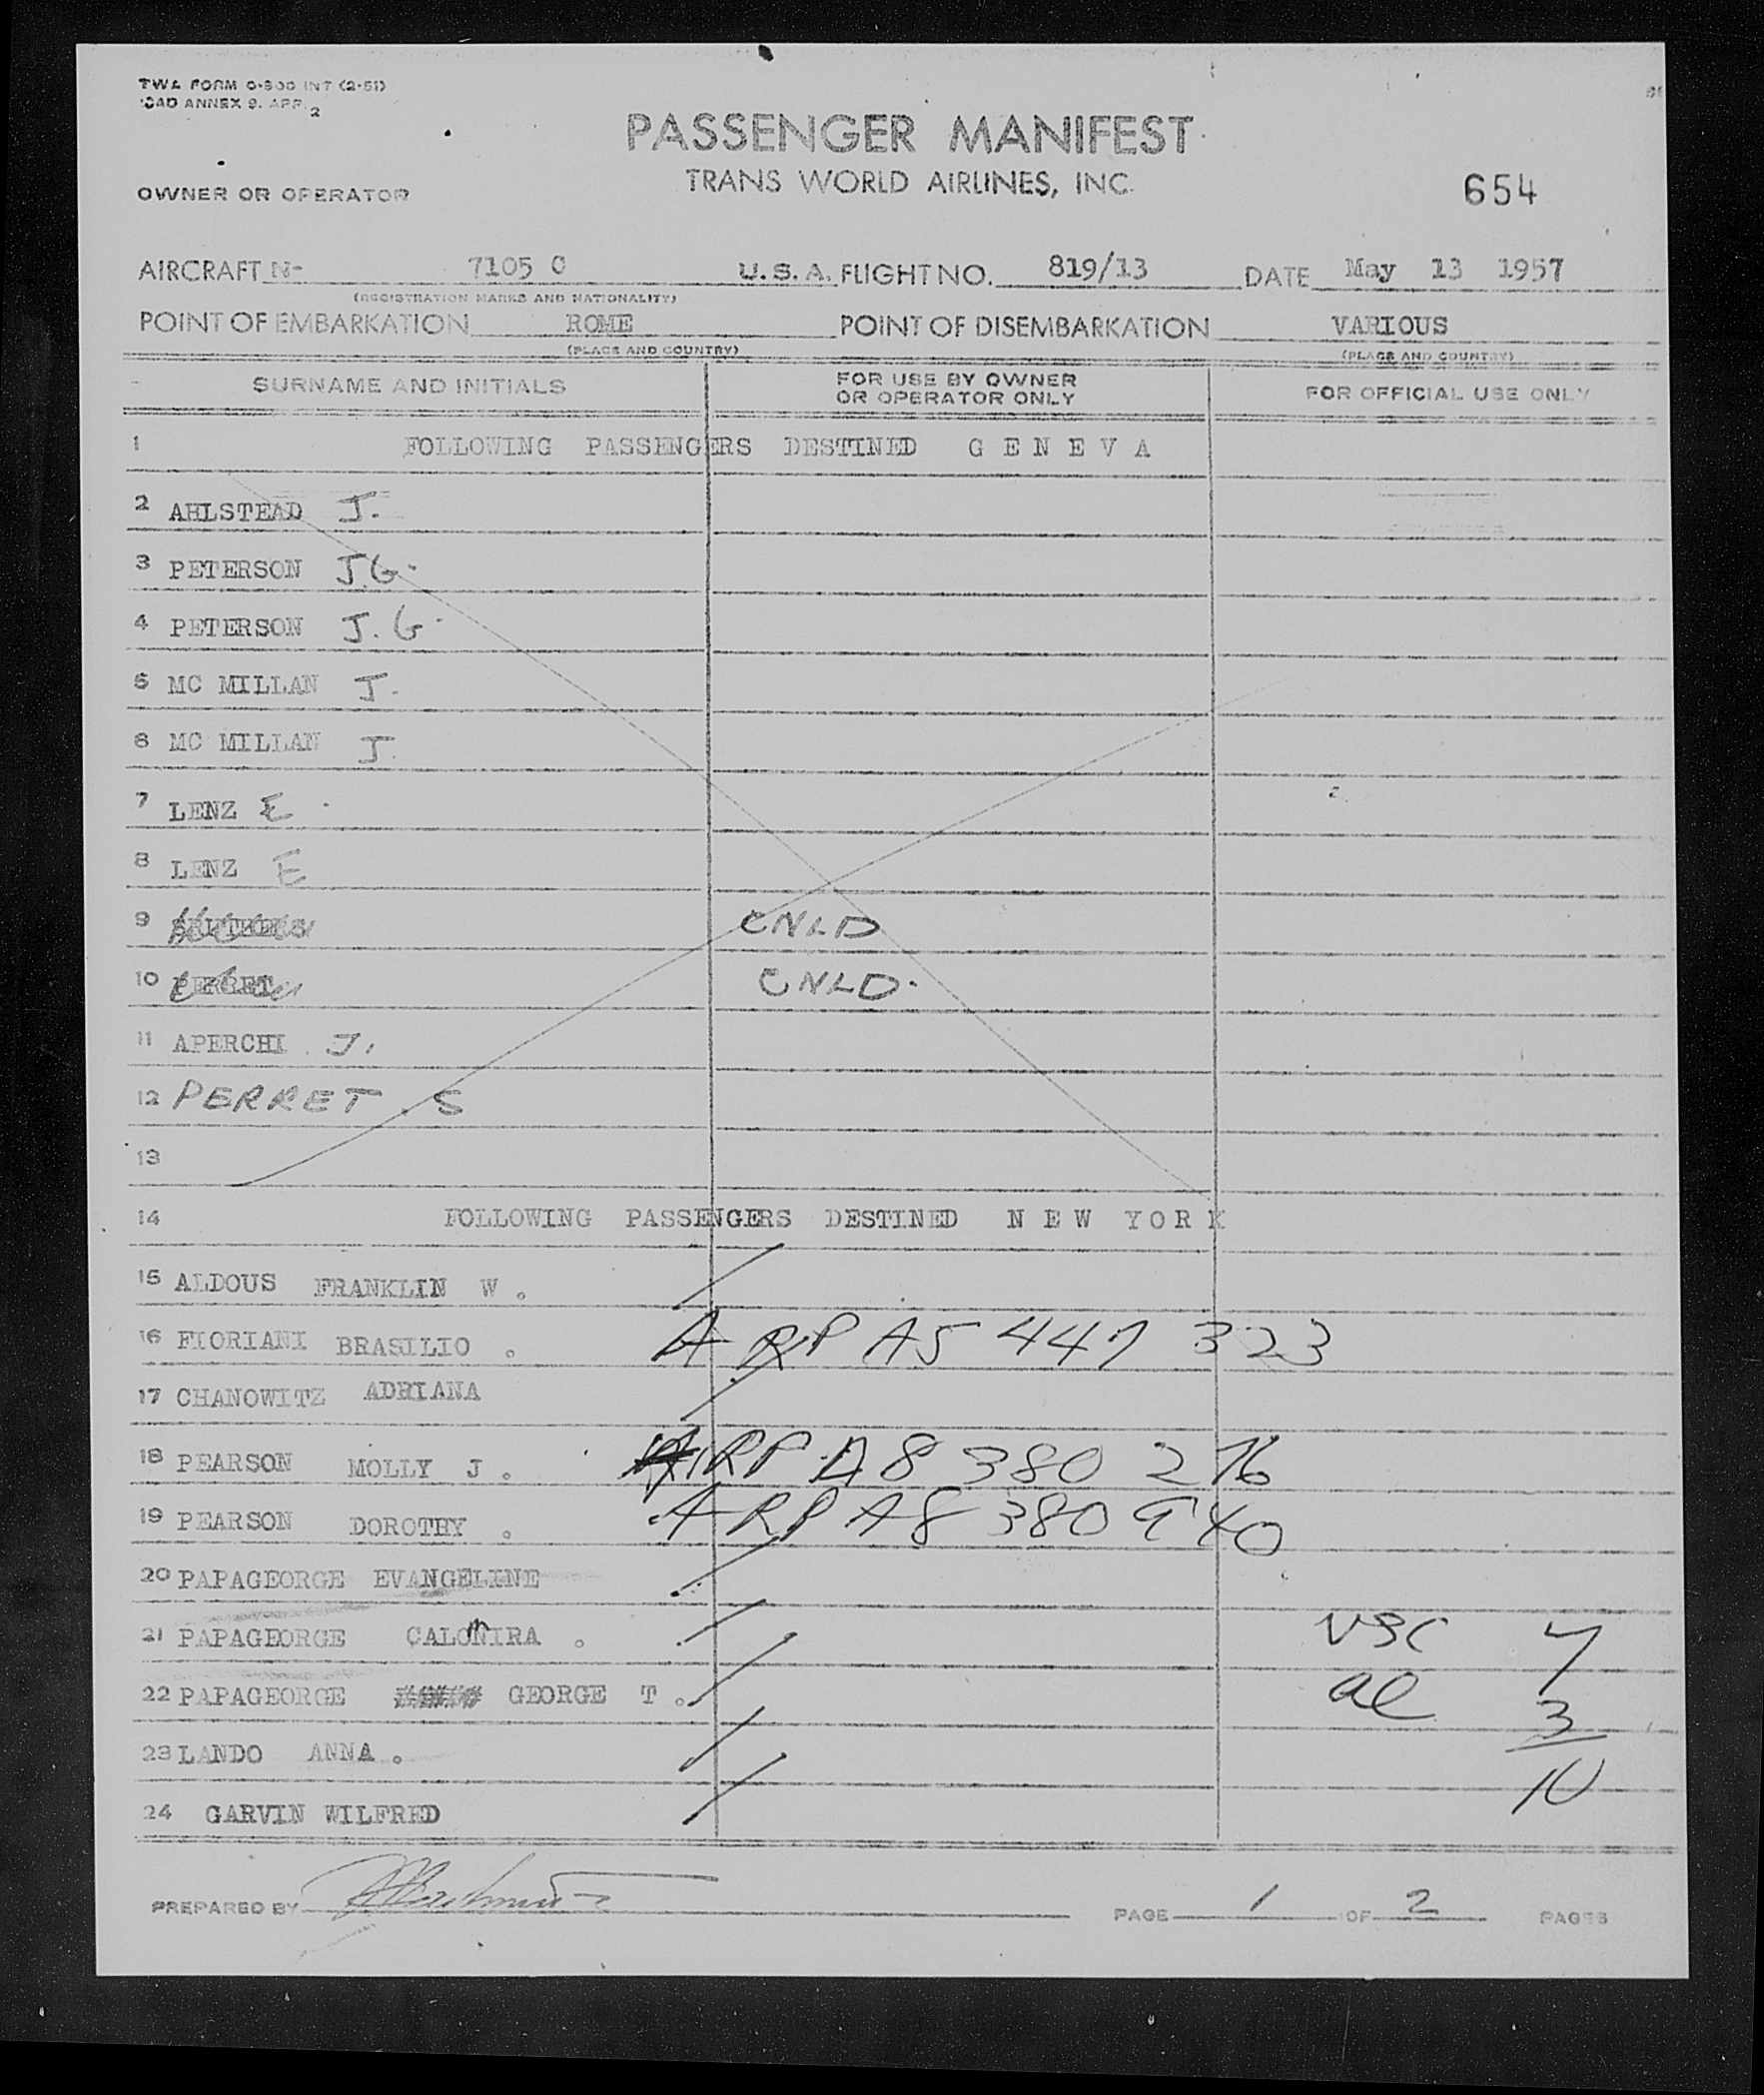 TWA FORM O-800 INT (2-51)
ICAO ANNEX 9. APP. 2
PASSENGER MANIFEST
TRANS WORLD AIRLINES, INC.
OWNER OR OPERATOR
654
AIRCRAFT N- 7105 C U.S.A. FLIGHT NO. 819/13 DATE May 13 1957
(REGISTRATION MARKS AND NATIONALITY)
POINT OF EMBARKATION ROME POINT OF DISEMBARKATION VARIOUS
(PLACE AND COUNTRY) (PLACE AND COUNTRY)
SURNAME AND INITIALS FOR USE BY OWNER OR OPERATOR ONLY FOR OFFICIAL USE ONLY
1 FOLLOWING PASSENGERS DESTINED G E N E V A
2 AHLSTEAD J.
3 PETERSON J.G.
4 PETERSON J.G.
5 MC MILLAN J.
6 MC MILLAN J.
7 LENZ E
8 LENZ E
9 CNLD
10 PERRET CNLD.
11 APERCHI J.
12 PERRET. S
13
14 FOLLOWING PASSENGERS DESTINED N E W Y O R K
15 ALDOUS FRANKLIN W.
16 FIORIANI BRASILIO. A RP A5 447 323
17 CHANOWITZ ADRIANA
18 PEARSON MOLLY J. ARP A8 380 276
19 PEARSON DOROTHY. ARP A8 380 940
20 PAPAGEORGE EVANGELINE
21 PAPAGEORGE CALOMIRA. USC 7
22 PAPAGEORGE GEORGE T. al 3
23 LANDO ANNA. 10
24 GARVIN WILFRED
PREPARED BY PAGE 1 OF 2 PAGES